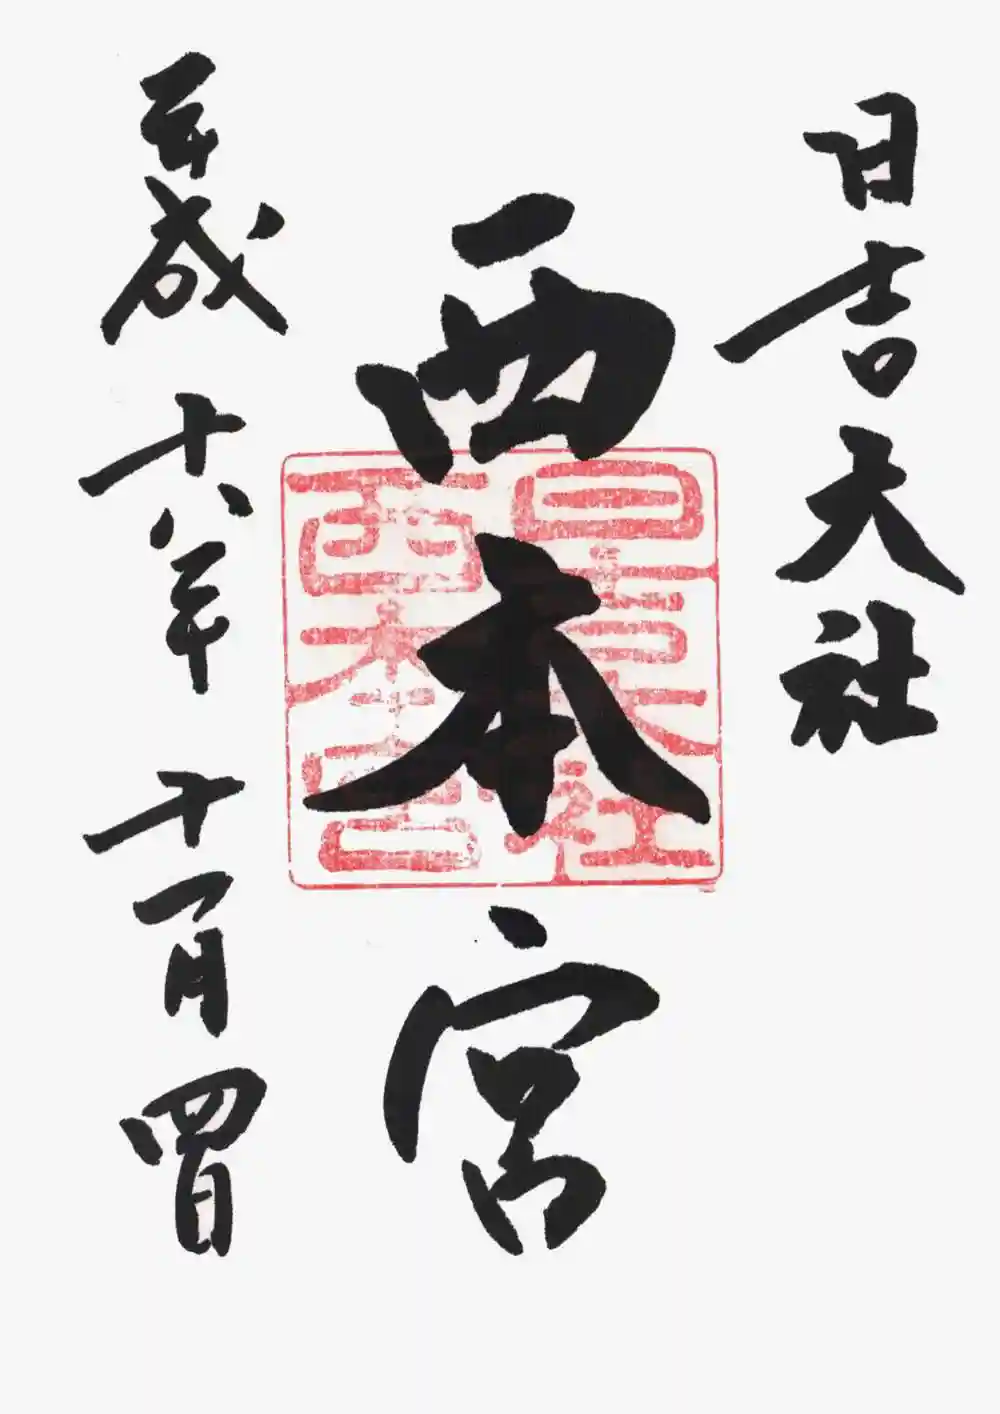 日吉大社
西本宮
日吉大社
西本宮
平成十八年十一月四日